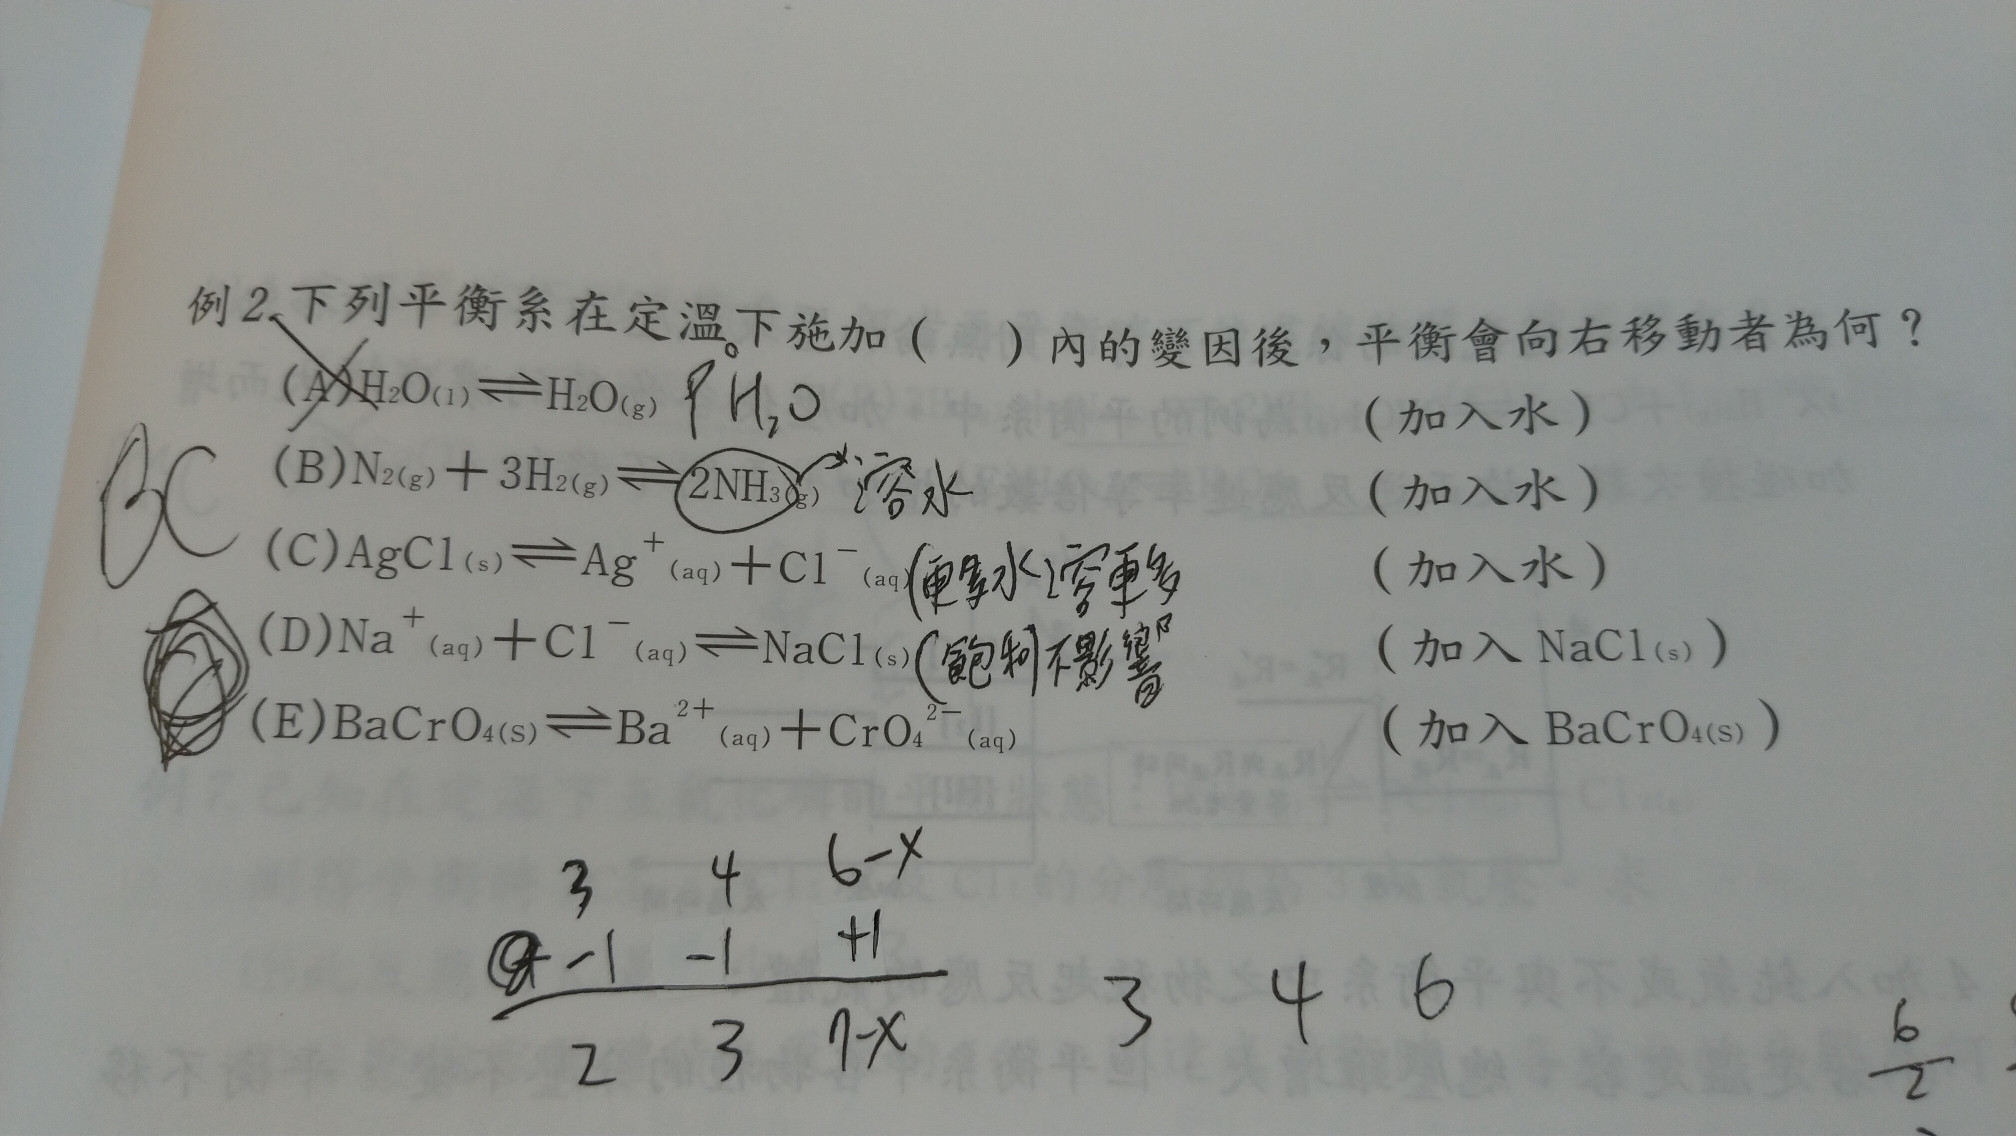 例2.下列平衡系在定溫下施加(　)內的變因後，平衡會向右移動者為何？
(A)H₂O(l)⇌H₂O(g) PH₂O (加入水)
(B)N₂(g)＋3H₂(g)⇌2NH₃(g) 溶水 (加入水)
BC
(C)AgCl(s)⇌Ag⁺(aq)＋Cl⁻(aq) (更多水溶更多 (加入水)
(D)Na⁺(aq)＋Cl⁻(aq)⇌NaCl(s) (飽和不影響 (加入NaCl(s))
(E)BaCrO₄(s)⇌Ba²⁺(aq)＋CrO₄²⁻(aq) (加入BaCrO₄(s))
3 4 6-x
-1 -1 +1
2 3 7-x
3 4 6
6
2